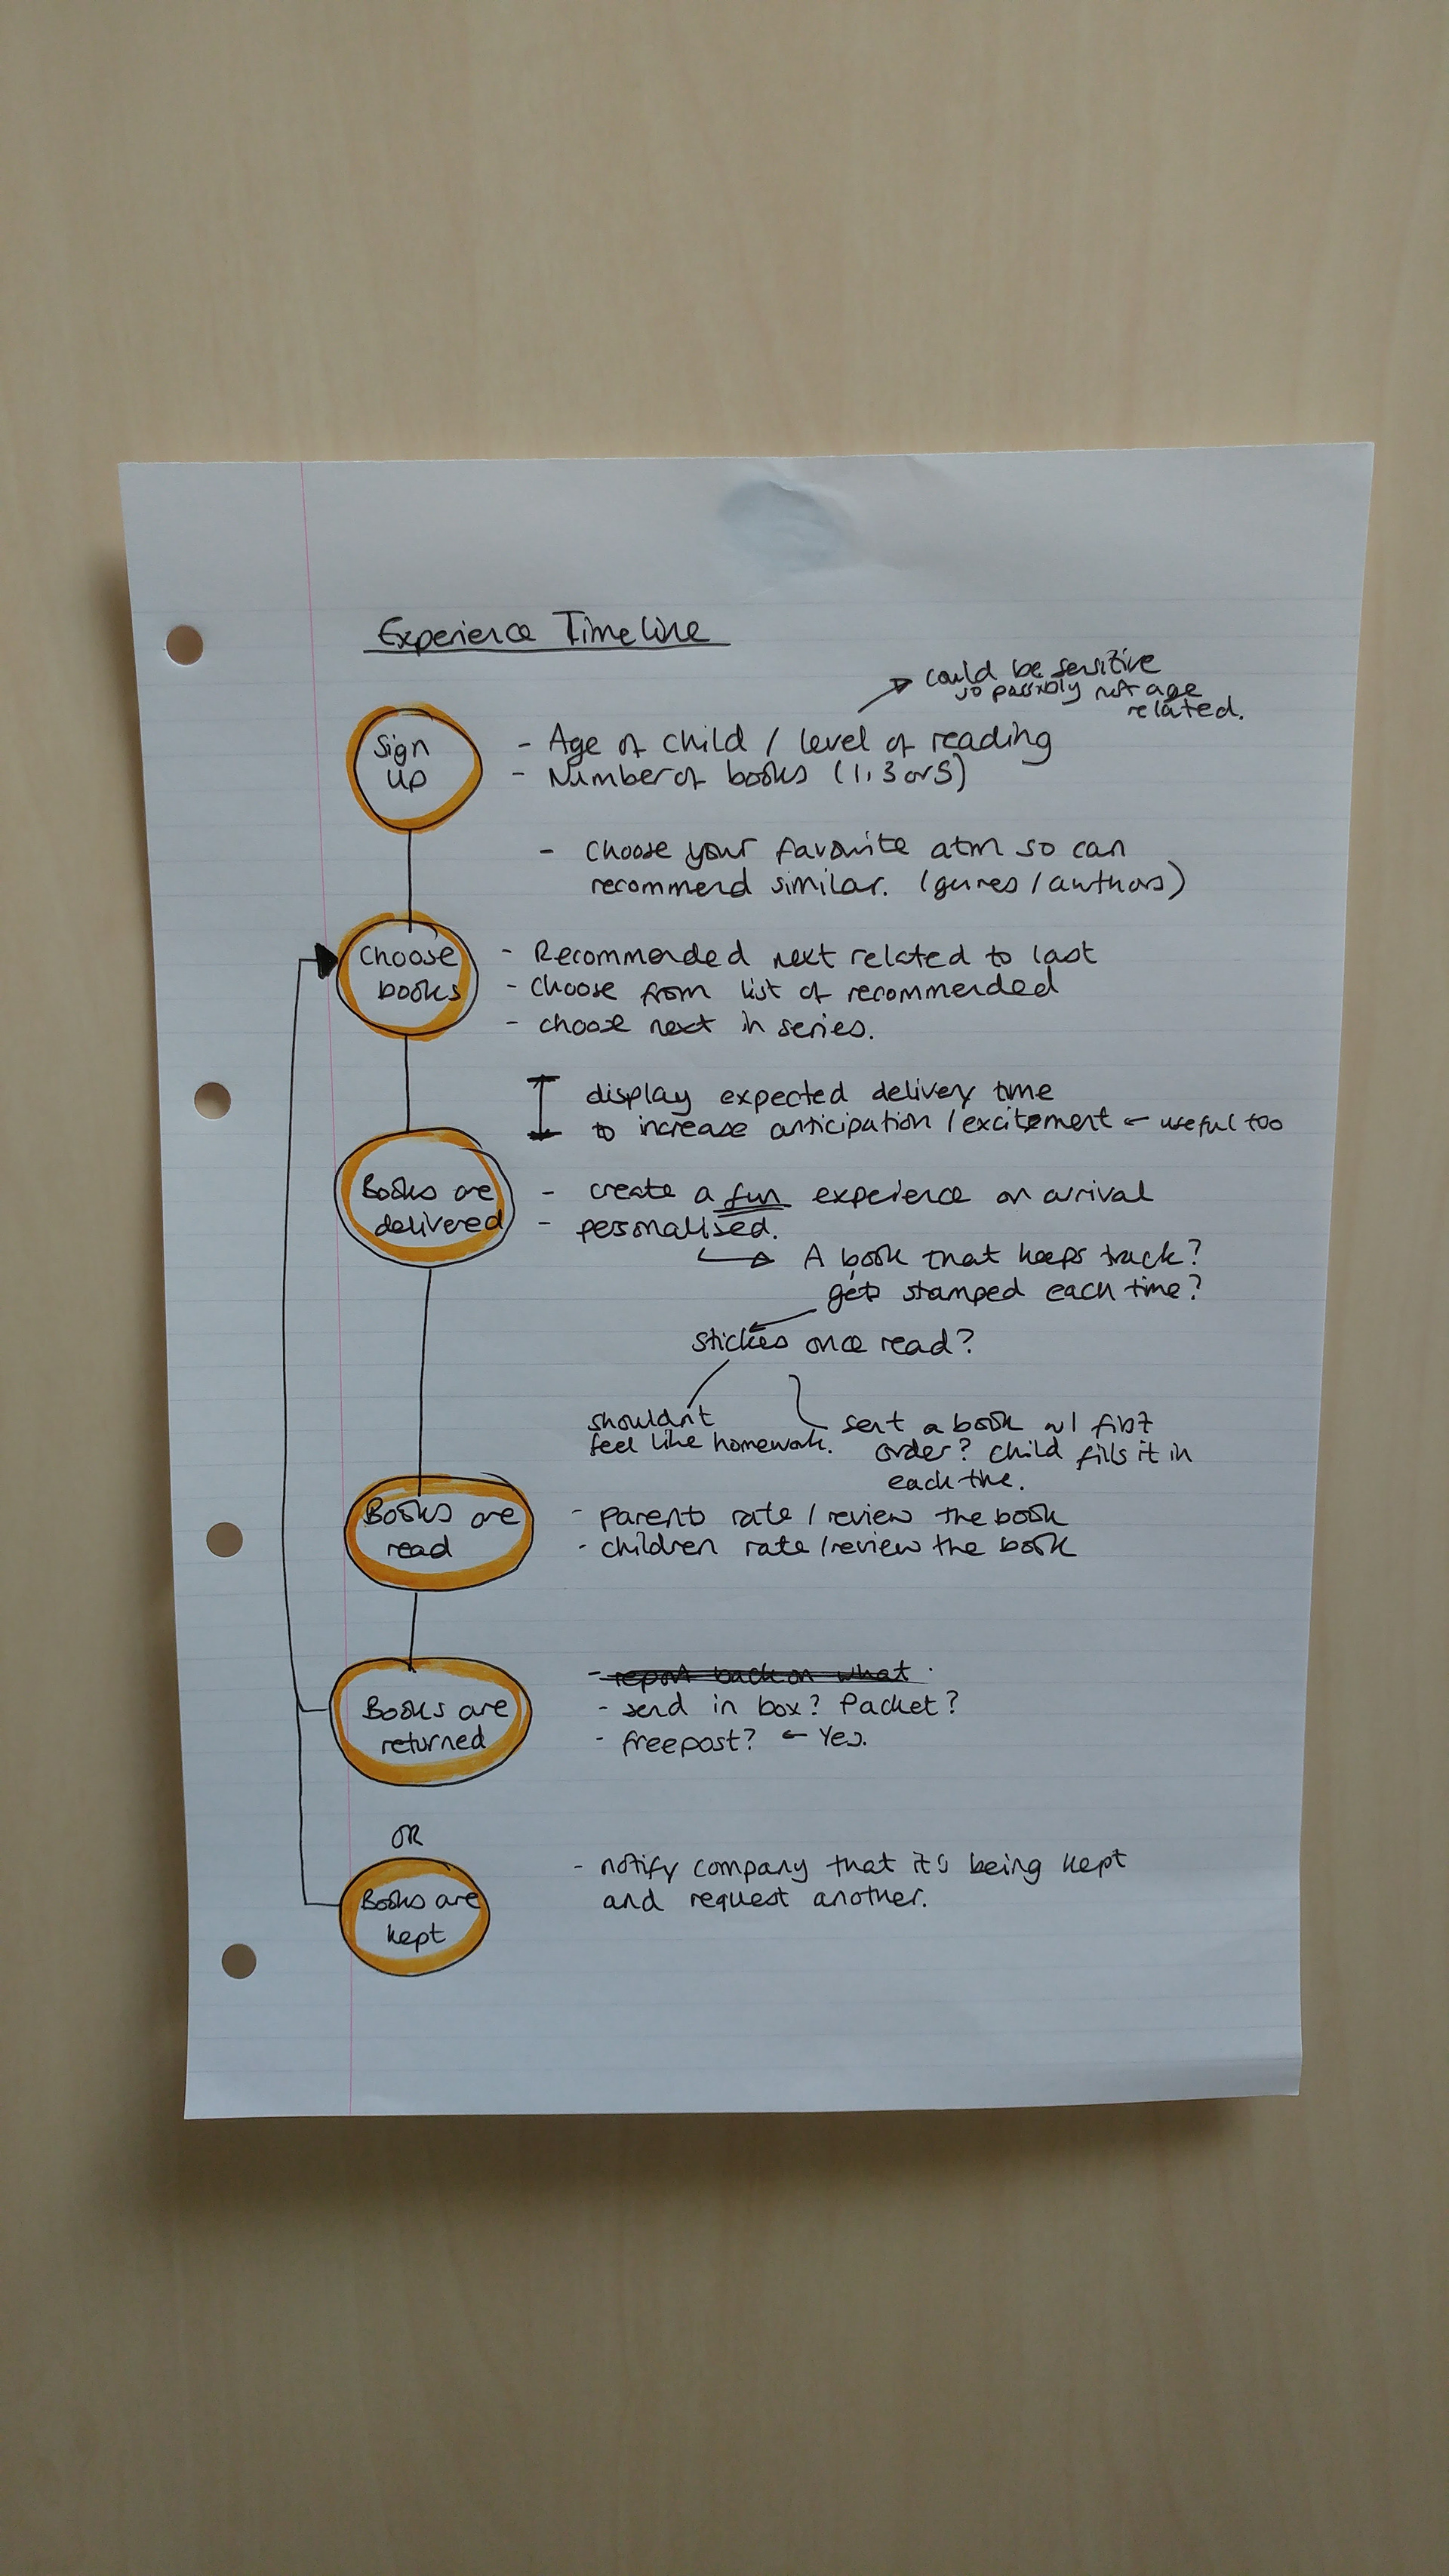 Experience Timeline
could be sensitive
so possibly not age
related.
Sign
up
- Age of child / level of reading
- Number of books (1, 3 or 5)
- choose your favourite atm so can
recommend similar. (genres / authors)
Choose
books
- Recommended next related to last
- choose from list of recommended
- choose next in series.
display expected delivery time
to increase anticipation / excitement ← useful too
Books are
delivered
- create a fun experience on arrival
- personalised.
A book that keeps track?
gets stamped each time?
stickers once read?
shouldn't
feel like homework.
sent a book w/ first
order? child fills it in
each time.
Books are
read
- parents rate / review the book
- children rate / review the book
Books are
returned
- report back on what
- send in box? Packet?
- freepost? ← Yes.
OR
Books are
kept
- notify company that it's being kept
and request another.